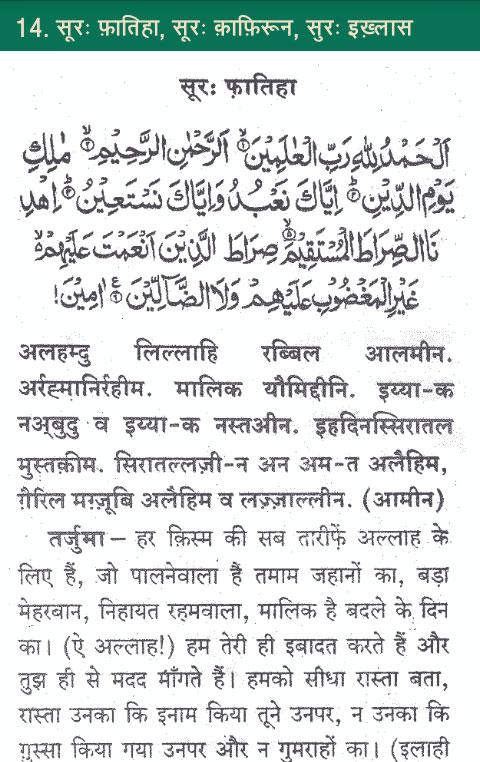 14. सूरः फ़ातिहा, सूरः क़ाफ़िरून, सुरः इख़्लास
सूरः फ़ातिहा
اَلْحَمْدُ لِلّٰهِ رَبِّ الْعٰلَمِيْنَ ۙ﴿۱﴾ اَلرَّحْمٰنِ الرَّحِيْمِ ۙ﴿۲﴾ مٰلِكِ
يَوْمِ الدِّيْنِ ؕ﴿۳﴾ اِيَّاكَ نَعْبُدُ وَاِيَّاكَ نَسْتَعِيْنُ ؕ﴿۴﴾ اِهْدِ
نَا الصِّرَاطَ الْمُسْتَقِيْمَ ۙ﴿۵﴾ صِرَاطَ الَّذِيْنَ اَنْعَمْتَ عَلَيْهِمْ ۙ
غَيْرِ الْمَغْضُوْبِ عَلَيْهِمْ وَلَا الضَّآلِّيْنَ اٰمِيْنَ!
अलहम्दु लिल्लाहि रब्बिल आलमीन.
अर्रह्मानिर्रहीम. मालिक यौमिद्दीनि. इय्या-क
नअ्बुदु व इय्या-क नस्तऔन. इहदिनस्सिरातल
मुस्तक़ीम. सिरातल्लज़ी-न अन अम-त अलैहिम,
ग़ैरिल मग़्ज़ूबि अलैहिम व लज़्ज़ाल्लीन. (आमीन)
तर्जुमा – हर क़िस्म की सब तारीफ़ें अल्लाह के
लिए हैं, जो पालनेवाला हैं तमाम जहानों का, बड़ा
मेहरबान, निहायत रहमवाला, मालिक है बदले के दिन
का। (ऐ अल्लाह!) हम तेरी ही इबादत करते हैं और
तुझ ही से मदद माँगते हैं। हमको सीधा रास्ता बता,
रास्ता उनका कि इनाम किया तूने उनपर, न उनका कि
ग़ुस्सा किया गया उनपर और न गुमराहों का। (इलाही